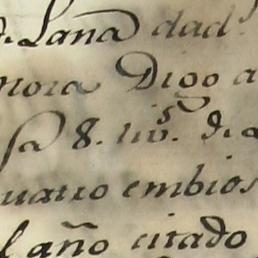 de Lana dad
nora Digo a
sa 8. livs. de
quatro embios
el año citado